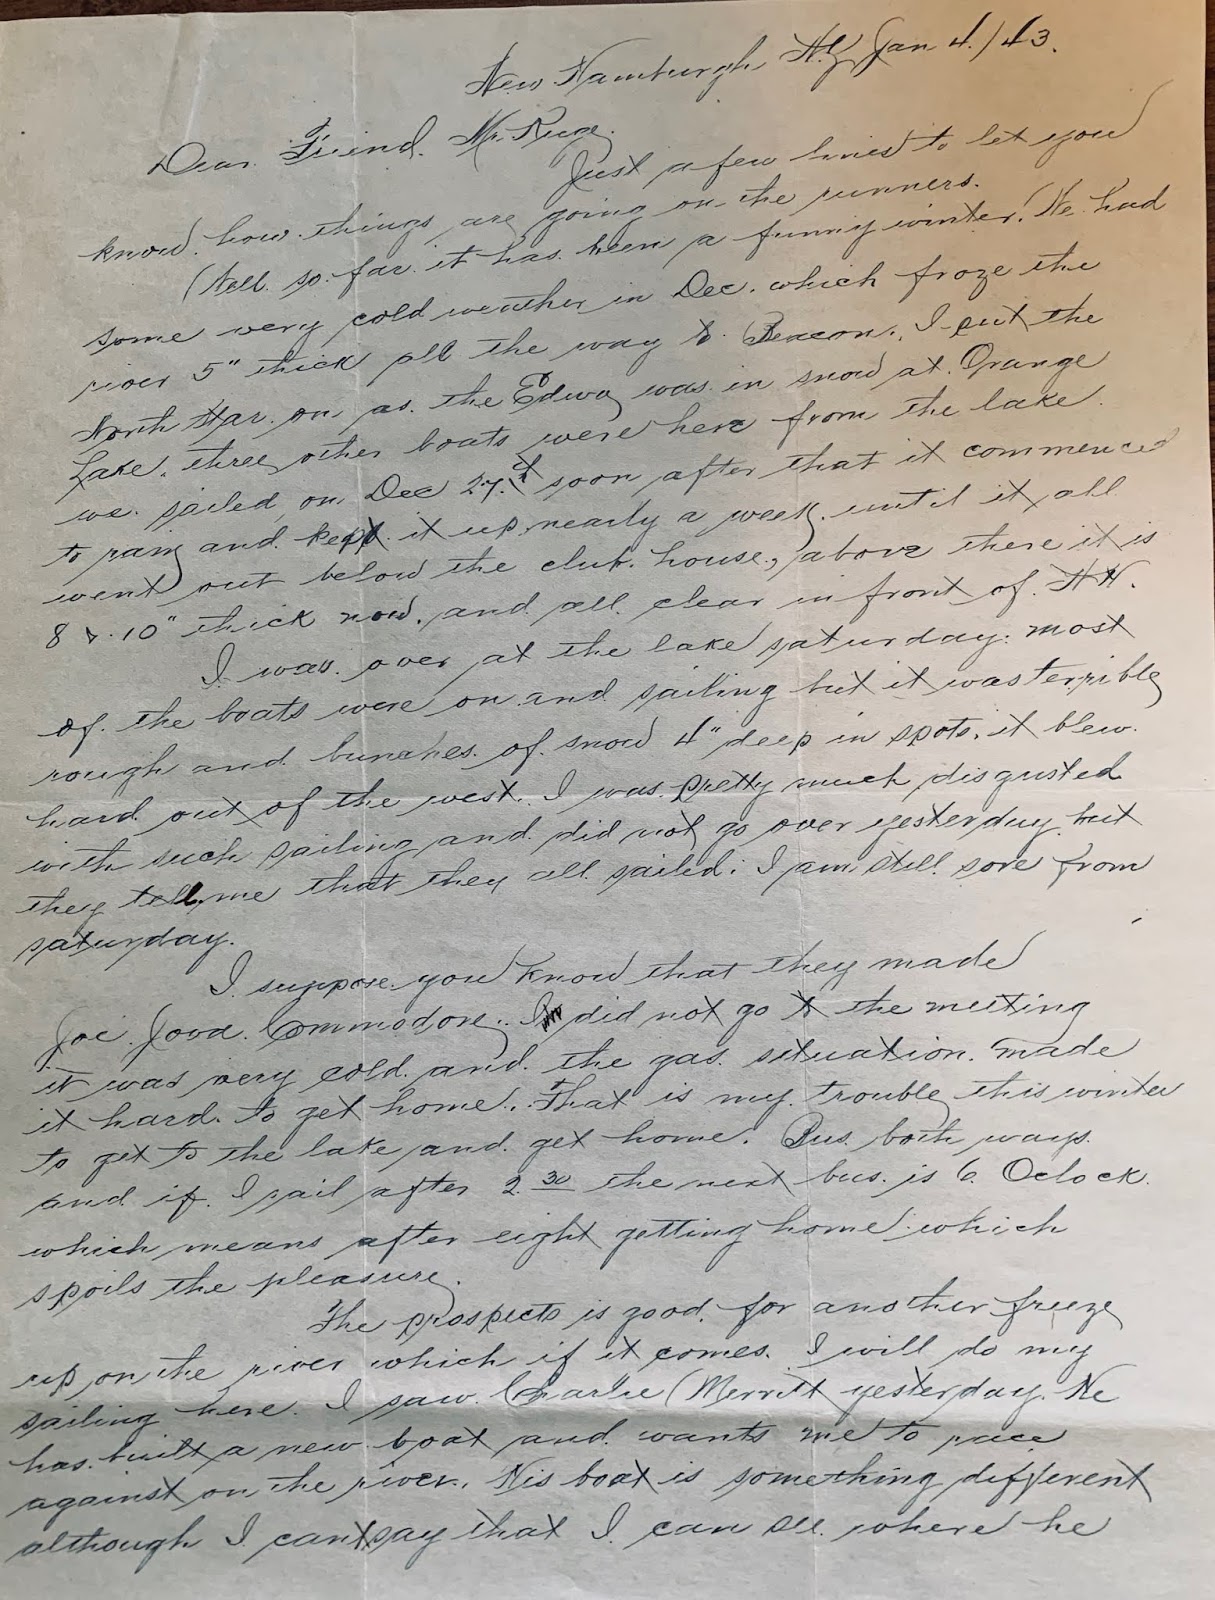 New Hamburgh N.Y Jan 4/43.
Dear Friend Mr. Ruge.
Just a few lines to let you
know how things are going on the runners.
Well so far it has been a funny winter. We had
some very cold weather in Dec. which froze the
river 5" thick all the way to Beacon. I put the
North Star on as the Edwa was in snow at Orange
Lake. three other boats were here from the lake.
we sailed on Dec 27. soon after that it commenced
to rain and kept it up nearly a week until it all
went out below the club house, above there it is
8 10" thick now, and all clear in front of N H.
I was over at the lake saturday. most
of the boats were on and sailing but it was terrible
rough and bunches of snow 4" deep in spots. it blew
hard out of the west. I was pretty much disgusted
with such sailing and did not go over yesterday but
they tell me that they all sailed. I am still sore from
saturday.
I suppose you know that they made
Joe Jova Commodore. I did not go to the meeting
it was very cold and the gas situation made
it hard to get home. That is my trouble this winter
to get to the lake and get home. Bus both ways
and if I sail after 2 30 the next bus is 6 Oclock
which means after eight getting home which
spoils the pleasure.
The prospects is good for another freeze
up on the river which if it comes. I will do my
sailing here. I saw Charlie Merritt yesterday. He
has built a new boat and wants me to race
against on the river. His boat is something different
although I cant say that I can see where he